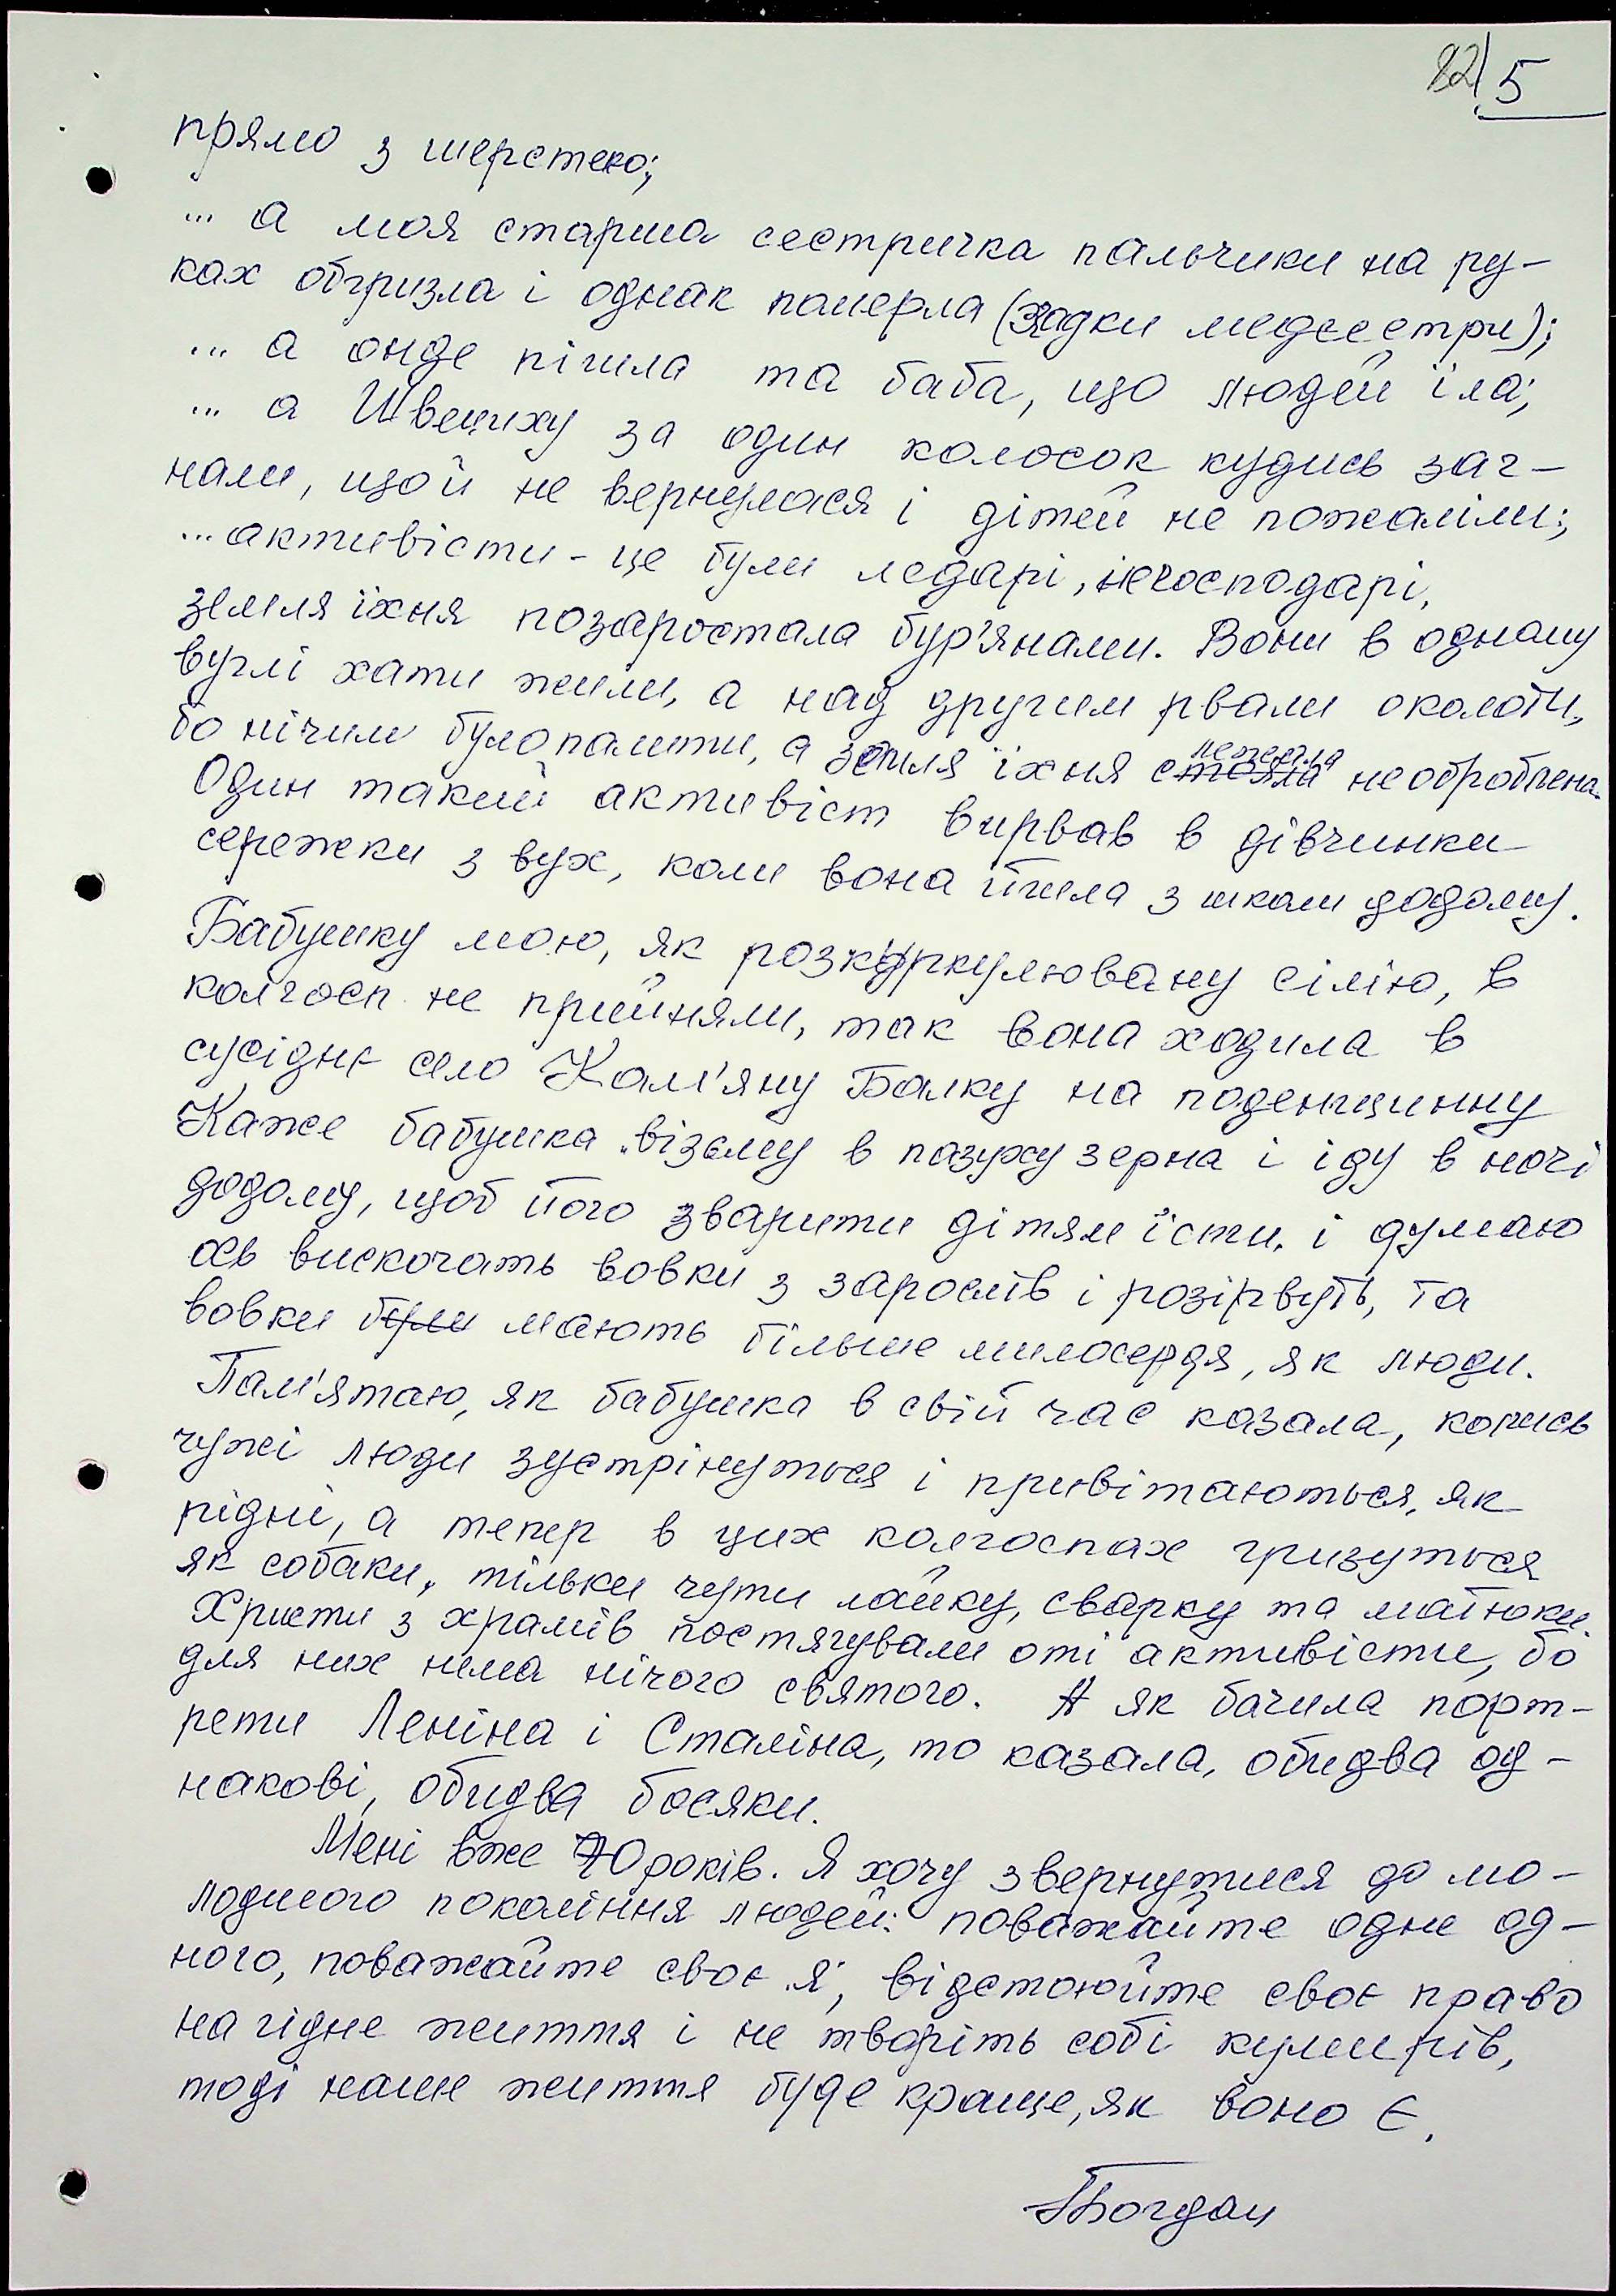 82 5
прямо з шерстею;
... а моя старша сестричка пальчики на ру-
ках обгризла і однак померла (згадки медсестри);
... а онде пішла та баба, що людей їла;
... а Швециху за один колосок кудись заг-
нали, що й не вернулася і дітей не пожаліли;
... активісти - це були ледарі, негосподарі,
земля їхня позаростала бур'янами. Вони в одному
вуглі хати жили, а над другим рвали околоти,
бо нічим було палити, а земля їхня стояла лежала необроблена.
Один такий активіст вирвав в дівчинки
сережки з вух, коли вона йшла з школи додому.
Бабушку мою, як розкуркулювану сім'ю, в
колгосп не прийняли, так вона ходила в
сусіднє село Кам'яну Балку на поденщинну
Каже бабушка „візьму в пазуху зерна і іду в ночі
додому, щоб його зварити дітям їсти, і думаю
ось вискочать вовки з заростів і розірвуть, та
вовки були мають більше милосердя, як люди.
Пам'ятаю, як бабушка в свій час казала, колись
чужі люди зустрінуться і привітаються, як
рідні, а тепер в цих колгоспах гризуться
як собаки, тільки чути лайку, сварку та матюки.
Христи з храмів постягували оті активісти, бо
для них нема нічого святого. А як бачила порт-
рети Леніна і Сталіна, то казала, обидва од-
накові, обидва босяки.
Мені вже 70 років. Я хочу звернутися до мо-
лодшого покоління людей: поважайте одне од-
ного, поважайте своє „я", відстоюйте своє право
на гідне життя і не творіть собі кумирів,
тоді наше життя буде краще, як воно є.
Богдан